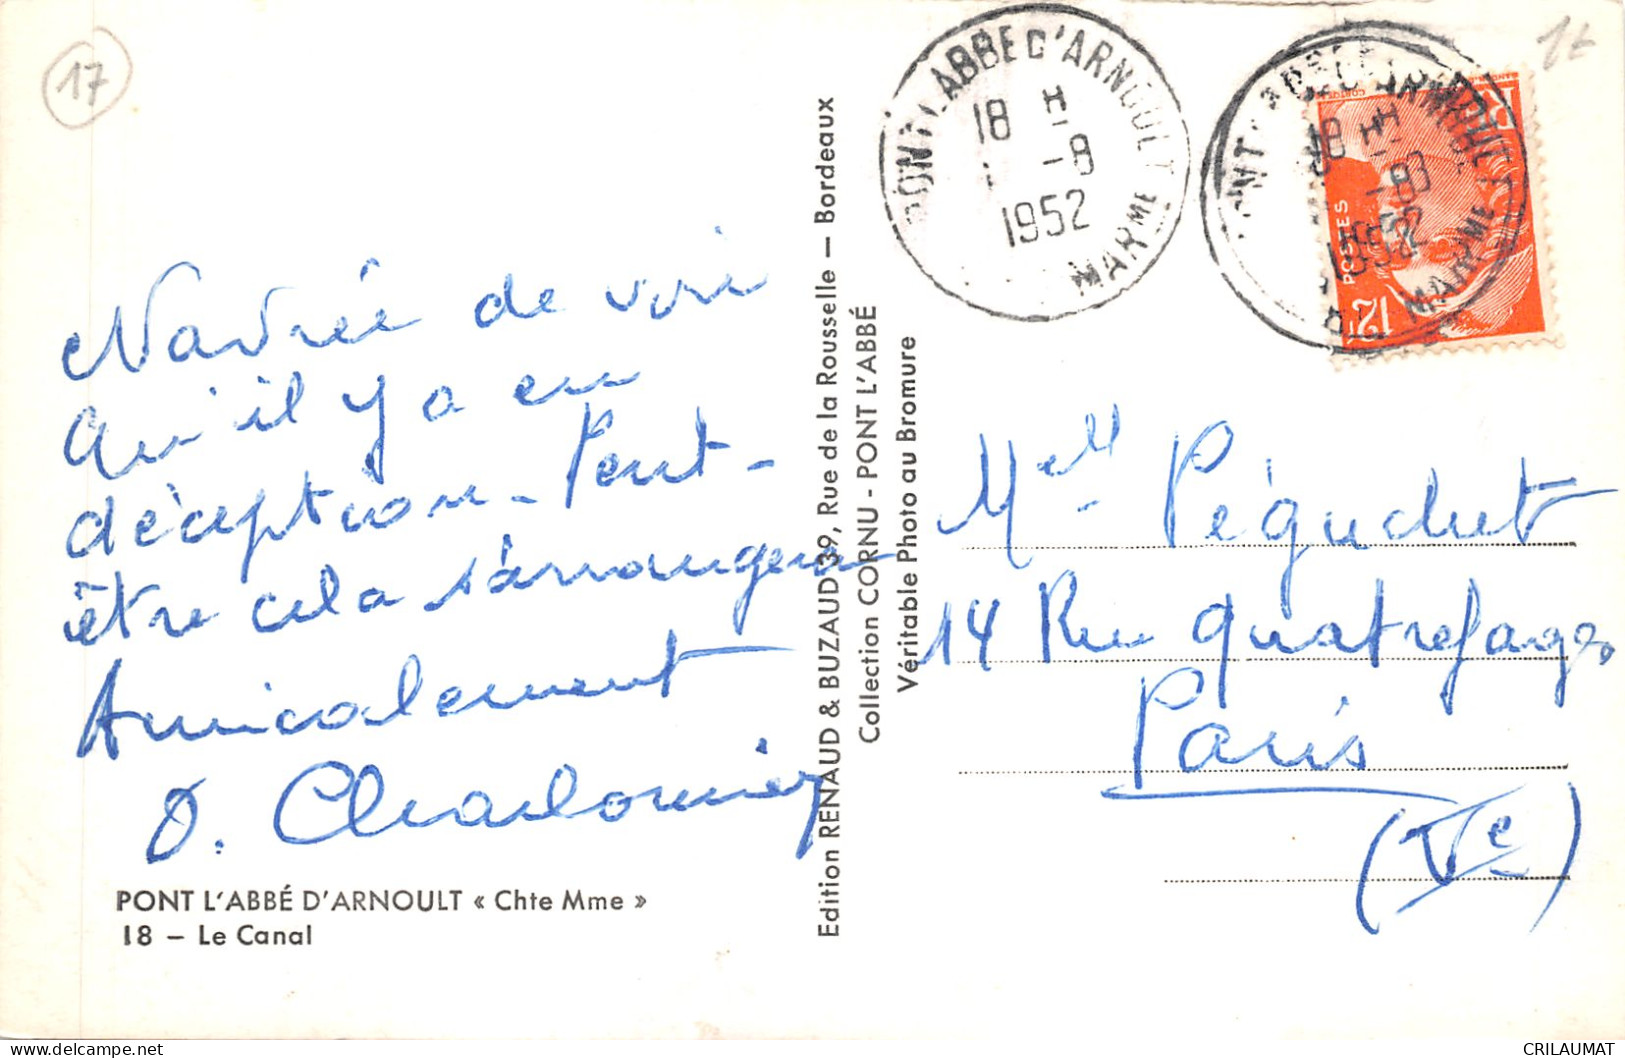 17
1€
PONT L'ABBE D'ARNOULT
18 H
-8
1952
MARME
POSTES
12F
Navrée de voir
qu'il y a eu
déception - Peut-
être cela s'arrangera
Amicalement
O. Charlonnier
PONT L'ABBÉ D'ARNOULT « Chte Mme »
18 – Le Canal
Edition RENAUD & BUZAUD 39, Rue de la Rousselle – Bordeaux
Collection CORNU - PONT L'ABBÉ
Véritable Photo au Bromure
Melle Péguchet
14 Rue Quatrefages
Paris
(Ve)
CRILAUMAT